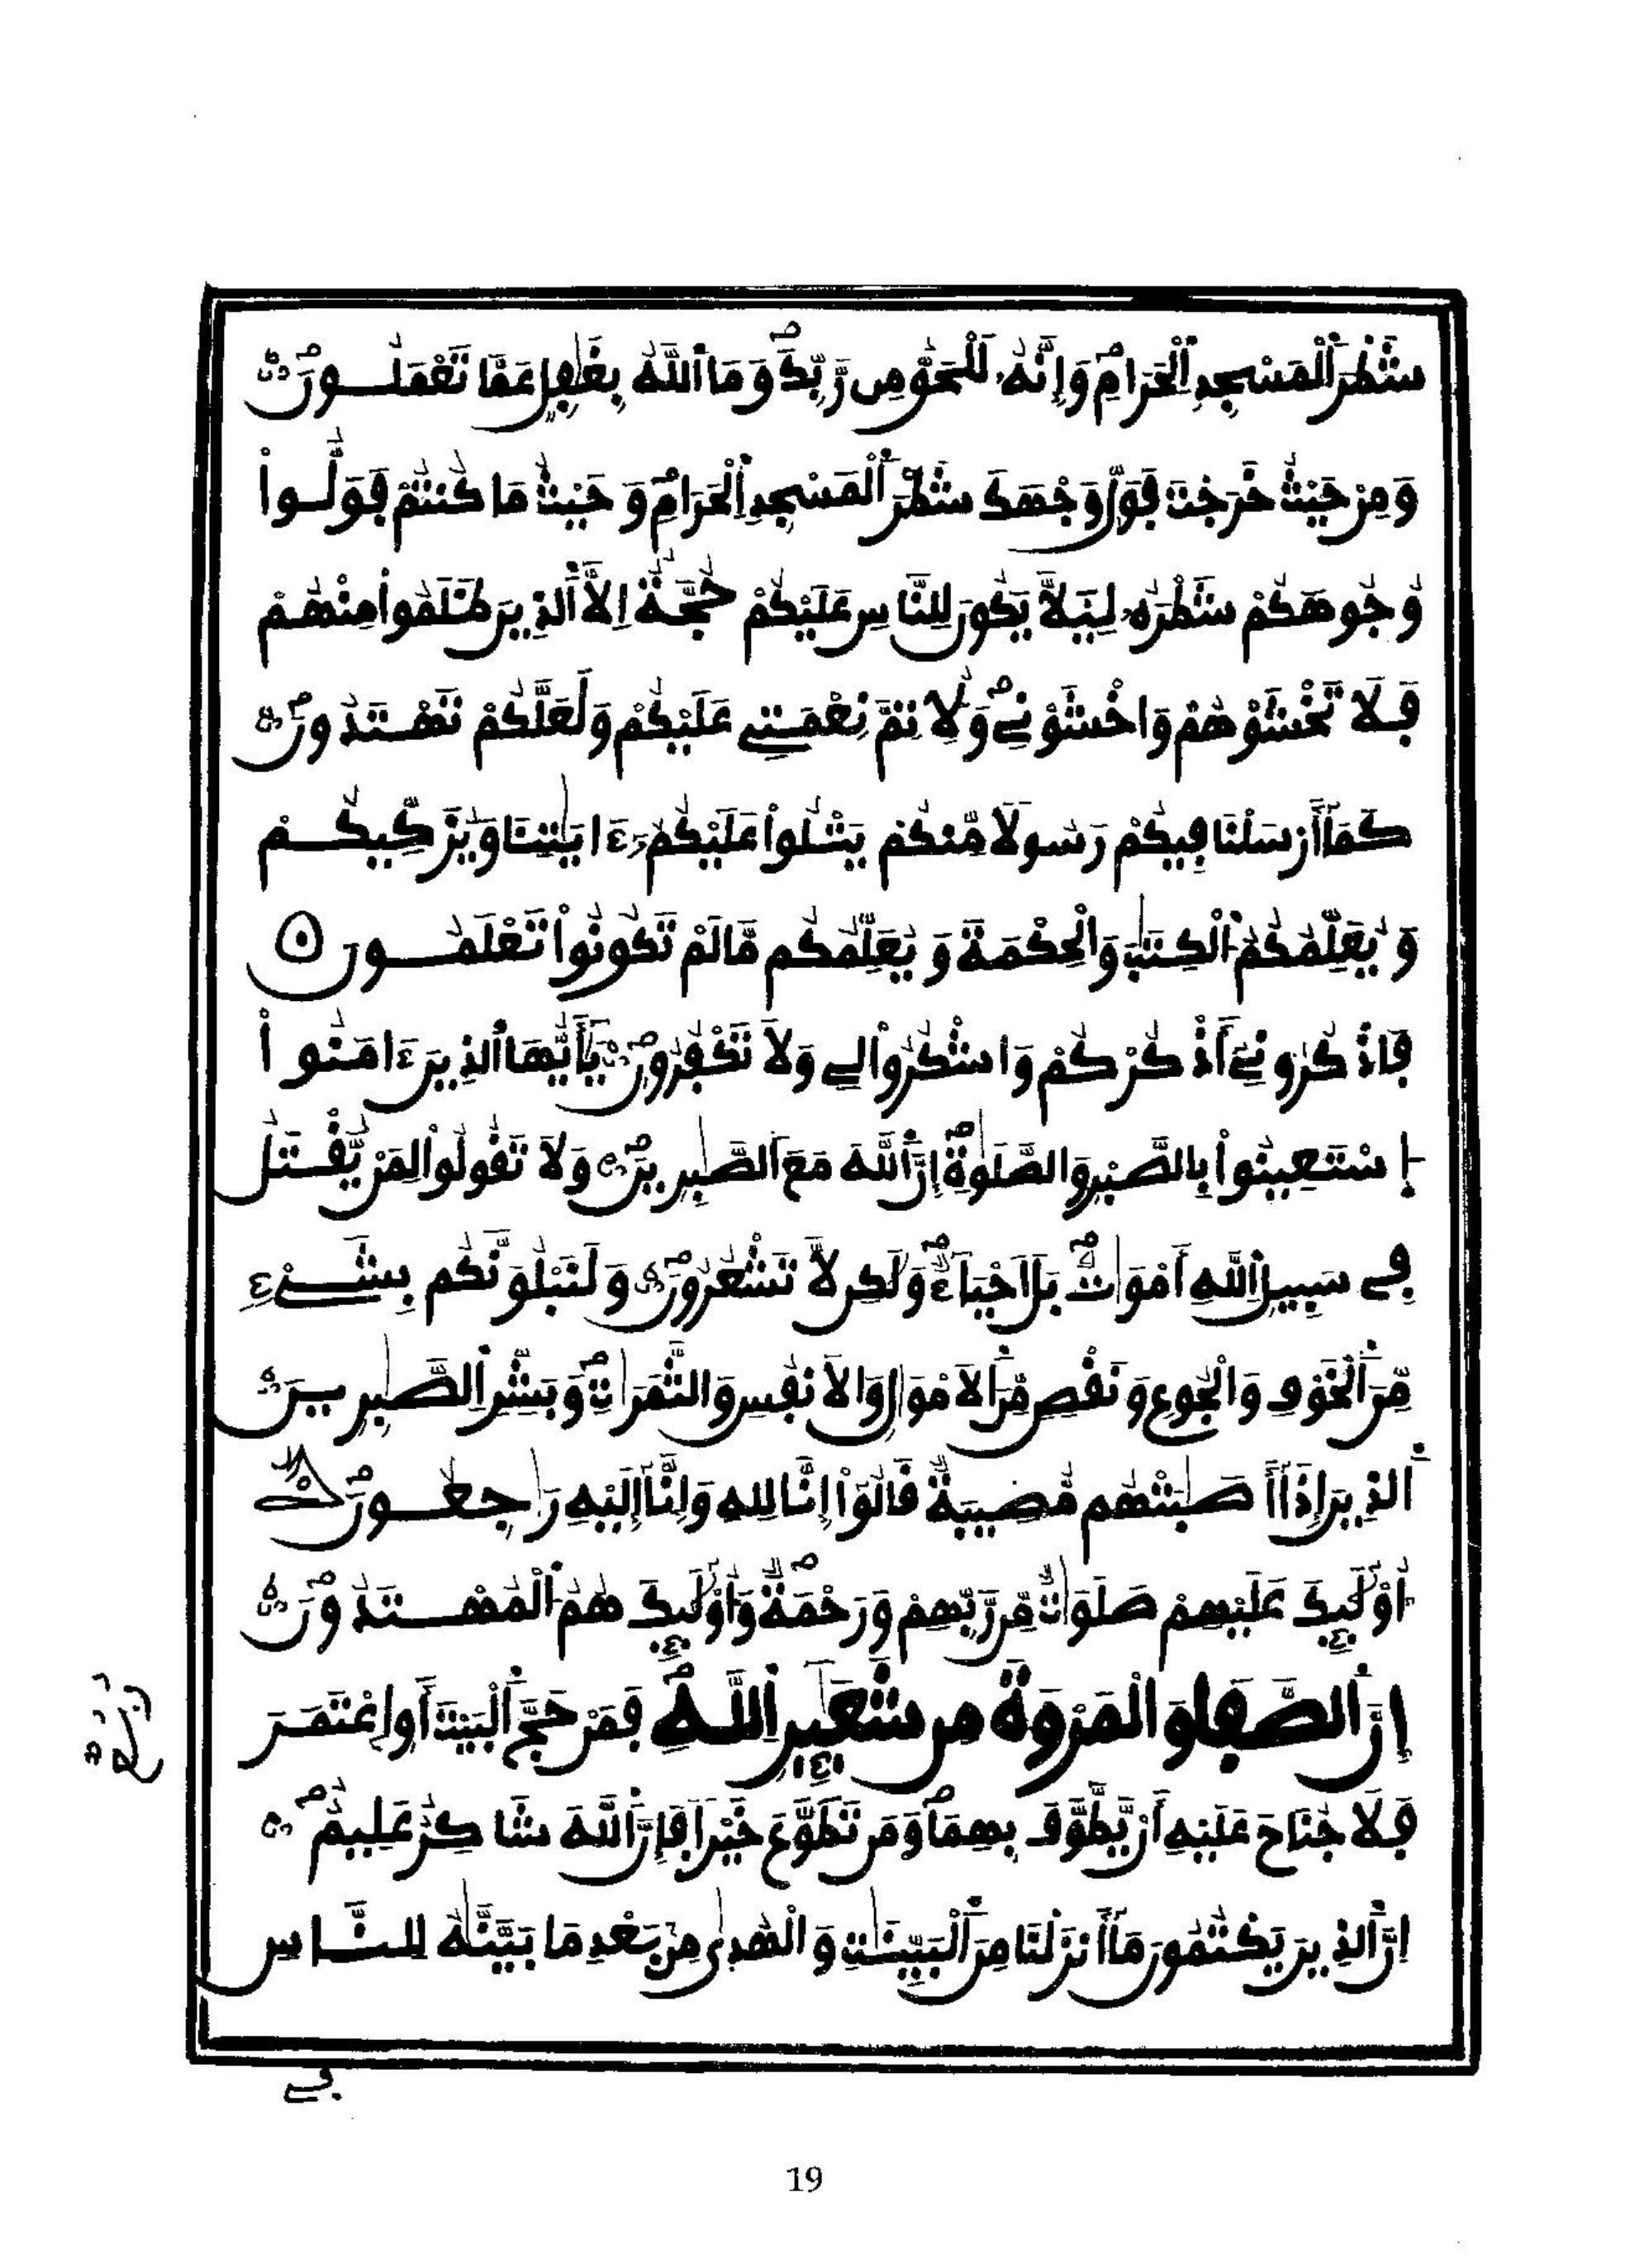 شَطْرَ اَ۬لْمَسْجِدِ اِ۬لْحَرَامِۖ وَإِنَّهُۥ لَلْحَقُّ مِن رَّبِّكَۖ وَمَا اَ۬للَّهُ بِغَٰفِلٍ عَمَّا تَعْمَلُونَۖ
وَمِنْ حَيْثُ خَرَجْتَ فَوَلِّ وَجْهَكَ شَطْرَ اَ۬لْمَسْجِدِ اِ۬لْحَرَامِۖ وَحَيْثُ مَا كُنتُمْ فَوَلُّواْ
وُجُوهَكُمْ شَطْرَهُۥ لِيَلَّا يَكُونَ لِلنَّاسِ عَلَيْكُمْ حُجَّةٌ اِلَّا اَ۬لذِينَ ظَلَمُواْ مِنْهُمْ
فَلَا تَخْشَوْهُمْ وَاخْشَوْنِےۖ وَلِأُتِمَّ نِعْمَتِے عَلَيْكُمْ وَلَعَلَّكُمْ تَهْتَدُونَۖ
كَمَآ أَرْسَلْنَا فِيكُمْ رَسُولًا مِّنكُمْ يَتْلُواْ عَلَيْكُمُۥٓ ءَايَٰتِنَا وَيُزَكِّيكُمْ
وَيُعَلِّمُكُمُ اُ۬لْكِتَٰبَ وَالْحِكْمَةَ وَيُعَلِّمُكُم مَّا لَمْ تَكُونُواْ تَعْلَمُونَ
فَاذْكُرُونِےٓ أَذْكُرْكُمْ وَاشْكُرُواْ لِے وَلَا تَكْفُرُونِۖ يَٰٓأَيُّهَا اَ۬لذِينَ ءَامَنُواْ
اُ۪سْتَعِينُواْ بِالصَّبْرِ وَالصَّلَوٰةِۖ إِنَّ اَ۬للَّهَ مَعَ اَ۬لصَّٰبِرِينَۖ وَلَا تَقُولُواْ لِمَنْ يُّقْتَلُ
فِے سَبِيلِ اِ۬للَّهِ أَمْوَٰتٌۖ بَلَ اَحْيَآءٌۖ وَلَٰكِن لَّا تَشْعُرُونَۖ وَلَنَبْلُوَنَّكُم بِشَےْءٍ
مِّنَ اَ۬لْخَوْفِ وَالْجُوعِ وَنَقْصٍ مِّنَ اَ۬لَامْوَٰلِ وَالَانفُسِ وَالثَّمَرَٰتِۖ وَبَشِّرِ اِ۬لصَّٰبِرِينَ
اَ۬لذِينَ إِذَآ أَصَٰبَتْهُم مُّصِيبَةٌ قَالُوٓاْ إِنَّا لِلهِ وَإِنَّآ إِلَيْهِ رَٰجِعُونَۖ
أُوْلَٰٓئِكَ عَلَيْهِمْ صَلَوَٰتٌ مِّن رَّبِّهِمْ وَرَحْمَةٌۖ وَأُوْلَٰٓئِكَ هُمُ اُ۬لْمُهْتَدُونَۖ
إِنَّ اَ۬لصَّفَا وَالْمَرْوَةَ مِن شَعَٰٓئِرِ اِ۬للَّهِۖ فَمَنْ حَجَّ اَ۬لْبَيْتَ أَوِ اِ۪عْتَمَرَ
فَلَا جُنَاحَ عَلَيْهِ أَنْ يَّطَّوَّفَ بِهِمَاۖ وَمَن تَطَوَّعَ خَيْرًا فَإِنَّ اَ۬للَّهَ شَاكِرٌ عَلِيمٌۖ
اِنَّ اَ۬لذِينَ يَكْتُمُونَ مَآ أَنزَلْنَا مِنَ اَ۬لْبَيِّنَٰتِ وَالْهُد۪ىٰ مِنۢ بَعْدِ مَا بَيَّنَّٰهُ لِلنَّاسِ
فے
19